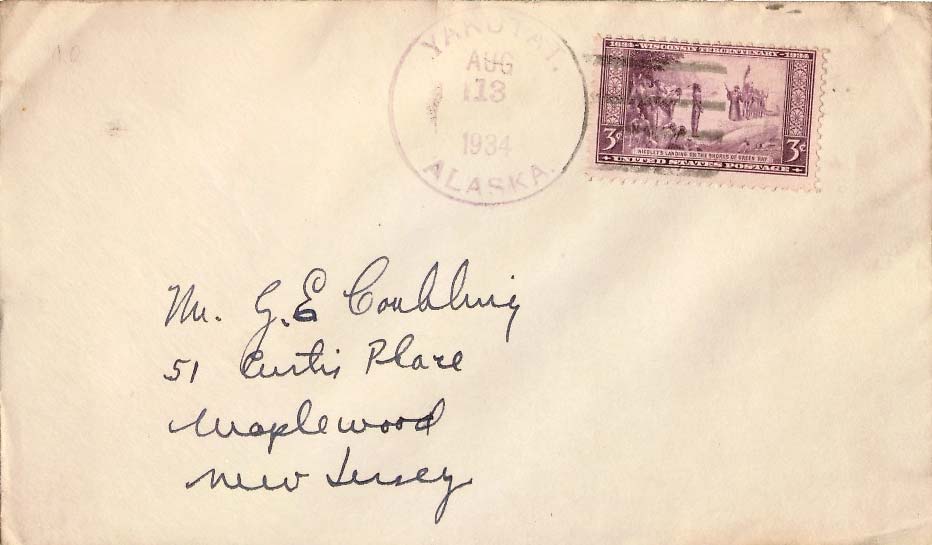 YAKUTAT.
AUG
13
1934
ALASKA.
1634-WISCONSIN TERCENTENARY-1934
3¢ NICOLET'S LANDING ON THE SHORES OF GREEN BAY 3¢
UNITED STATES POSTAGE
Mr. G.E
51 Curtis Place
Maplewood
New Jersey